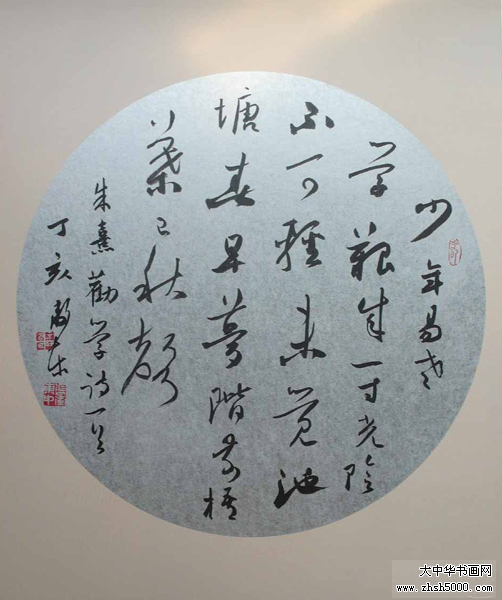 少年易老
学難成一寸光陰
不可輕未覺池
塘春草夢階前梧
葉已秋聲
朱熹勸学詩一首
丁亥
大中华书画网
www.zhsh5000.com